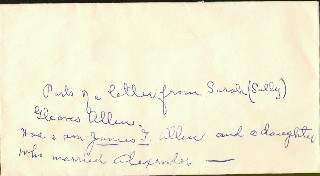 Parts of a letter from Sarah (Sally)
Gleaves Allen.
Had a son James F. Allen and a daughter
who married Alexander —